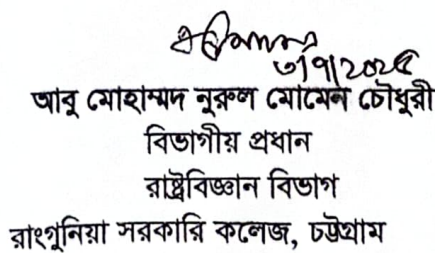 ৩/৭/২০২৫
আবু মোহাম্মদ নুরুল মোমেন চৌধুরী
বিভাগীয় প্রধান
রাষ্ট্রবিজ্ঞান বিভাগ
রাংগুনিয়া সরকারি কলেজ, চট্টগ্রাম